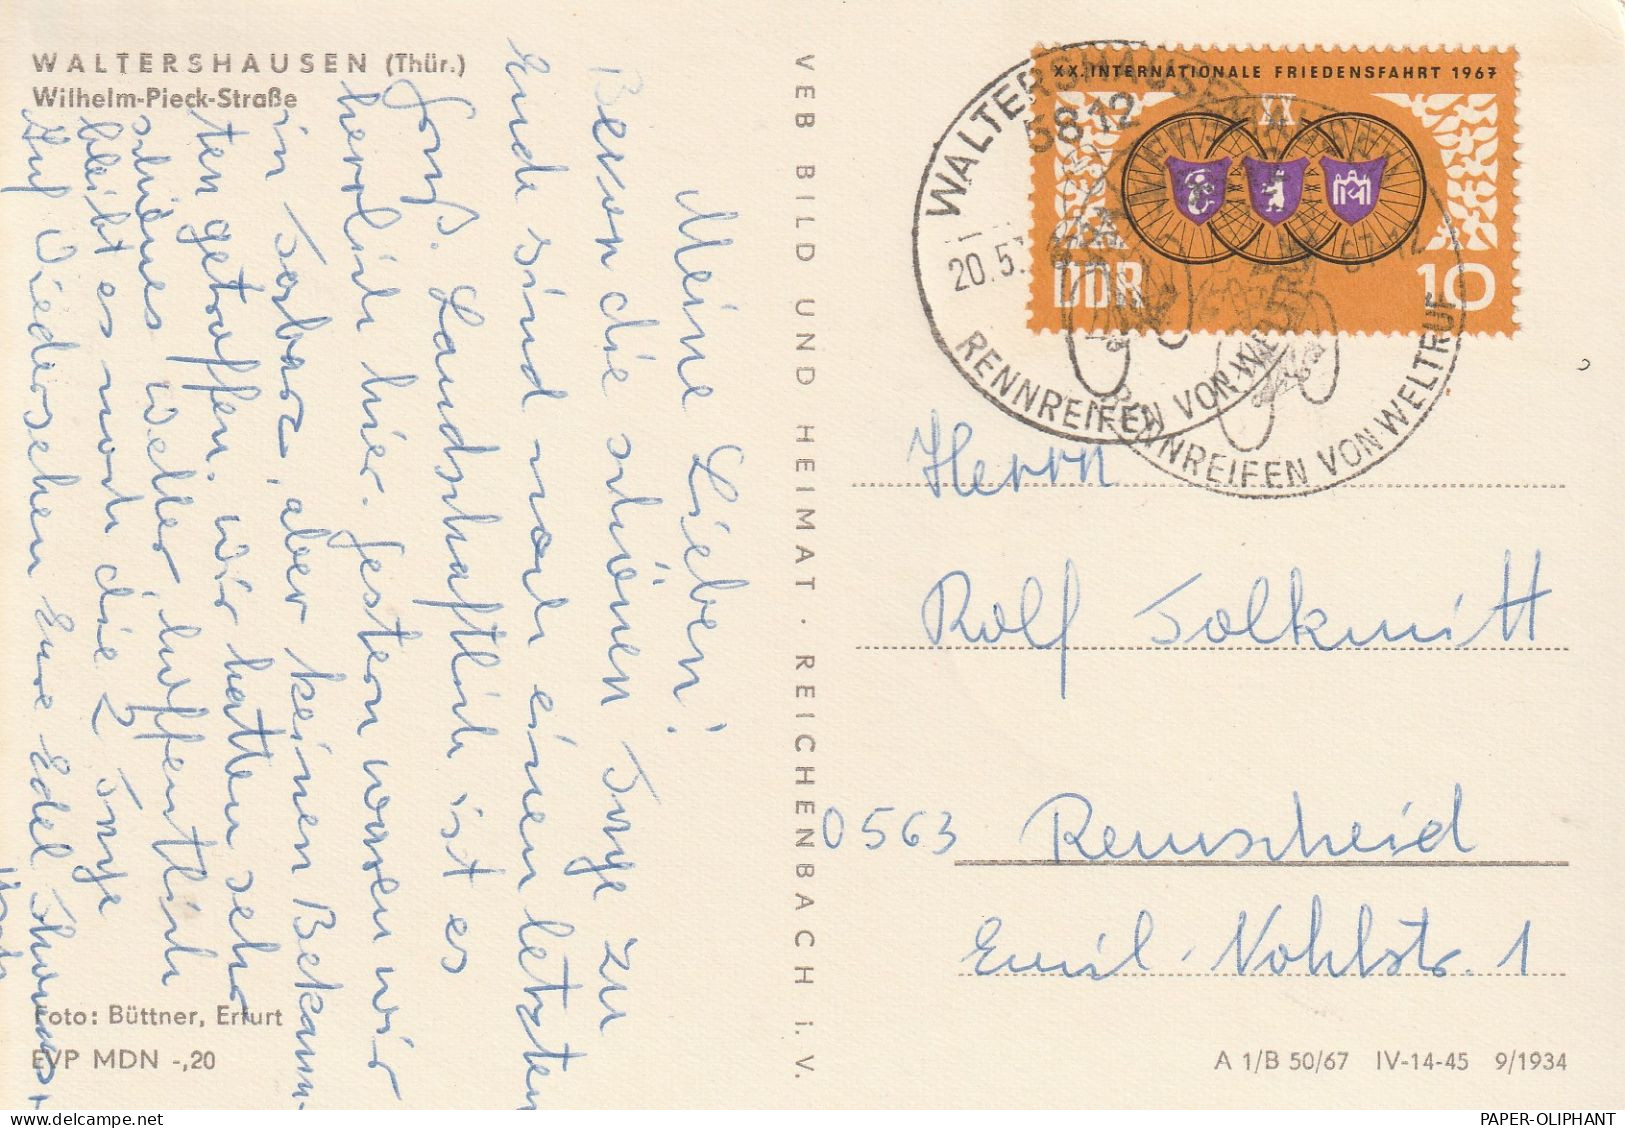 WALTERSHAUSEN (Thür.)
Wilhelm-Pieck-Straße
Meine Lieben!
Bevor die schönen Tage zu
Ende sind noch einen letzten
Gruß. Landschaftlich ist es
herrlich hier. Gestern waren wir
in Tabarz, aber keinen Bekann-
ten getroffen. Wir hatten sehr
schönes Wetter, hoffentlich
bleibt es noch die 2 Tage
Auf Wiedersehen Eure Edel Thomas +
Foto: Büttner, Erfurt
EVP MDN -,20
VEB BILD UND HEIMAT · REICHENBACH i. V.
XX. INTERNATIONALE FRIEDENSFAHRT 1967
XX
DDR
10
WALTERSHAUSEN
5812
20.5.
67-12
RENNREIFEN VON WELTRUF
RENNREIFEN VON WELTRUF
Herrn
Rolf Tolkmitt
0563 Remscheid
Emil-Nohlstr. 1
A 1/B 50/67 IV-14-45 9/1934
PAPER-OLIPHANT